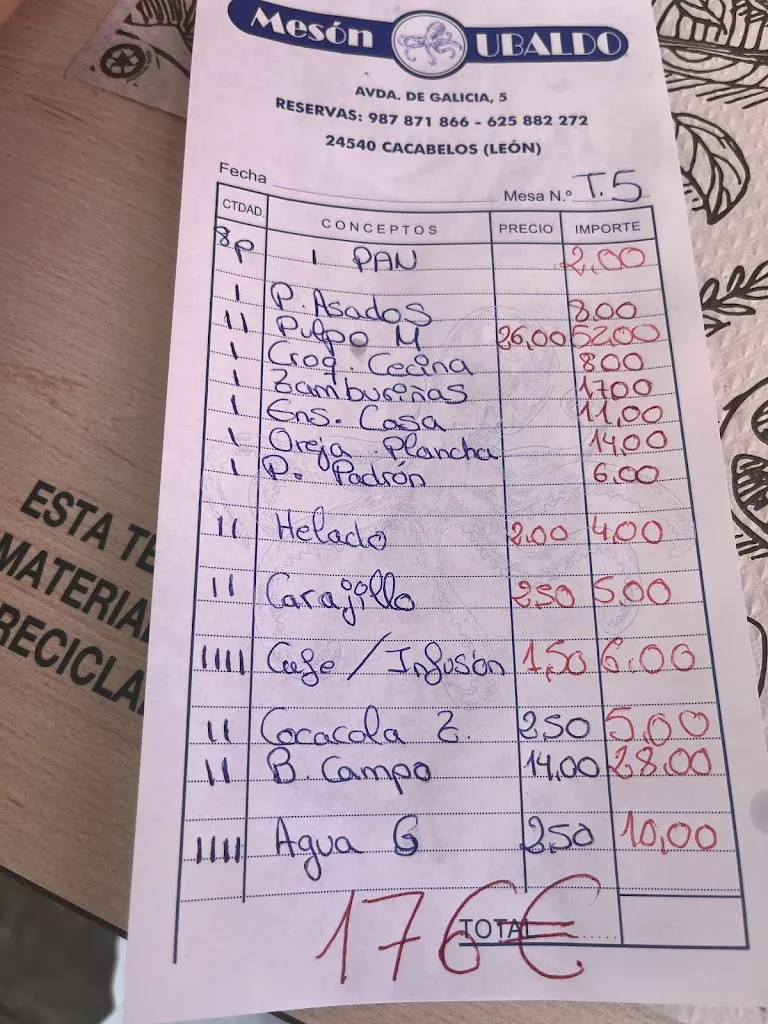 Mesón UBALDO
AVDA. DE GALICIA, 5
RESERVAS: 987 871 866 - 625 882 272
24540 CACABELOS (LEÓN)
Fecha Mesa N.º T.5
CTDAD. CONCEPTOS PRECIO IMPORTE
8p 1 PAN 2,00
1 P. Asados 8,00
11 Pulpo M 26,00 52,00
1 Croq. Cecina 8,00
1 Zamburiñas 17,00
1 Ens. Casa 11,00
1 Oreja Plancha 14,00
1 P. Padrón 6,00
11 Helado 2,00 4,00
11 Carajillo 2,50 5,00
1111 Cafe / Infusión 1,50 6,00
11 Cocacola Z. 2,50 5,00
11 B. Campo 14,00 28,00
1111 Agua G 2,50 10,00
TOTAL 176€
ESTA TE
MATERIA
RECICLA